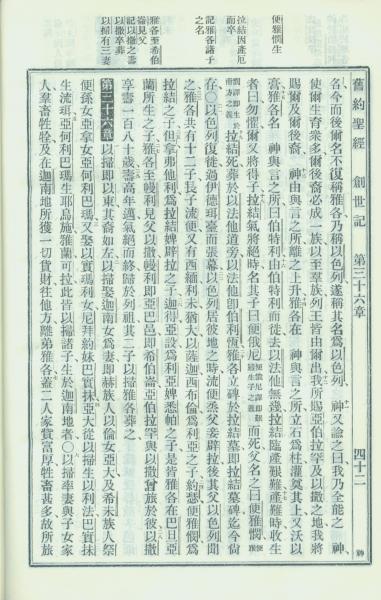 舊約聖經　創世記　第三十六章　四十二　神
便雅憫生
拉結因產厄而卒
記雅各諸子之名
雅各至希伯崙見父
記以撒之壽
以撒卒葬
以掃有三妻
名今而後爾名不復稱雅各乃稱以色列遂稱其名爲以色列　神又諭之曰我乃全能之　神
使爾生育衆多爾後裔必成一族以至羣族列王皆由爾出我所賜亞伯拉罕及以撒之地我將
賜爾及爾後裔　神由與言之所離之上升雅各在　神與言之所立石爲柱灌奠其上又沃以
膏雅各名　神與言之所曰伯特利由伯特利而徙去以法他無幾拉結臨產艱難產難時收生
者曰勿懼爾又將得子拉結氣將絕時名其子曰便俄尼而死父名之曰便雅憫
拉結死葬於以法他道旁以法他即伯利恆雅各立碑於拉結墓即拉結墓碑迄今尙
存○以色列復徙過伊德珥臺而張幕以色列居彼地之時流便烝父妾辟拉後其父以色列聞
之雅各共有十二子長子流便又有西緬利未猶大以薩迦西布倫爲利亞之子約瑟便雅憫爲
拉結之子但拿弗他利爲拉結婢辟拉之子迦得亞設爲利亞婢悉帕之子是皆雅各在巴旦亞
蘭所生之子雅各至幔利見父以撒幔利即亞巴邑即希伯崙亞伯拉罕與以撒曾旅於彼以撒
享壽一百八十歲壽高年邁氣絕而終歸於列祖其二子以掃雅各葬之
第三十六章　以掃即以東其裔如左以掃娶迦南女爲妻即赫族人以倫女亞大及希未族人祭
便孫女亞拿女阿何利巴瑪又娶以實瑪利女尼拜約妹巴實抹亞大從以掃生以利法巴實抹
生流珥亞何利巴瑪生耶烏施雅蘭可拉此皆以掃諸子生於迦南地者○以掃率妻與子女家
人羣畜牲駝及在迦南地所獲一切貨財往他方離弟雅各蓋二人家貲富厚牲畜甚多故所旅